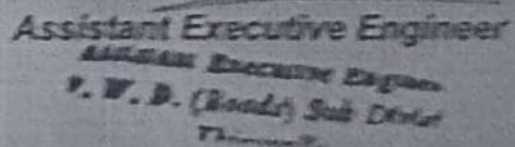 Assistant Executive Engineer
Assistant Executive Engineer
P. W. D. (Roads) Sub Divisi